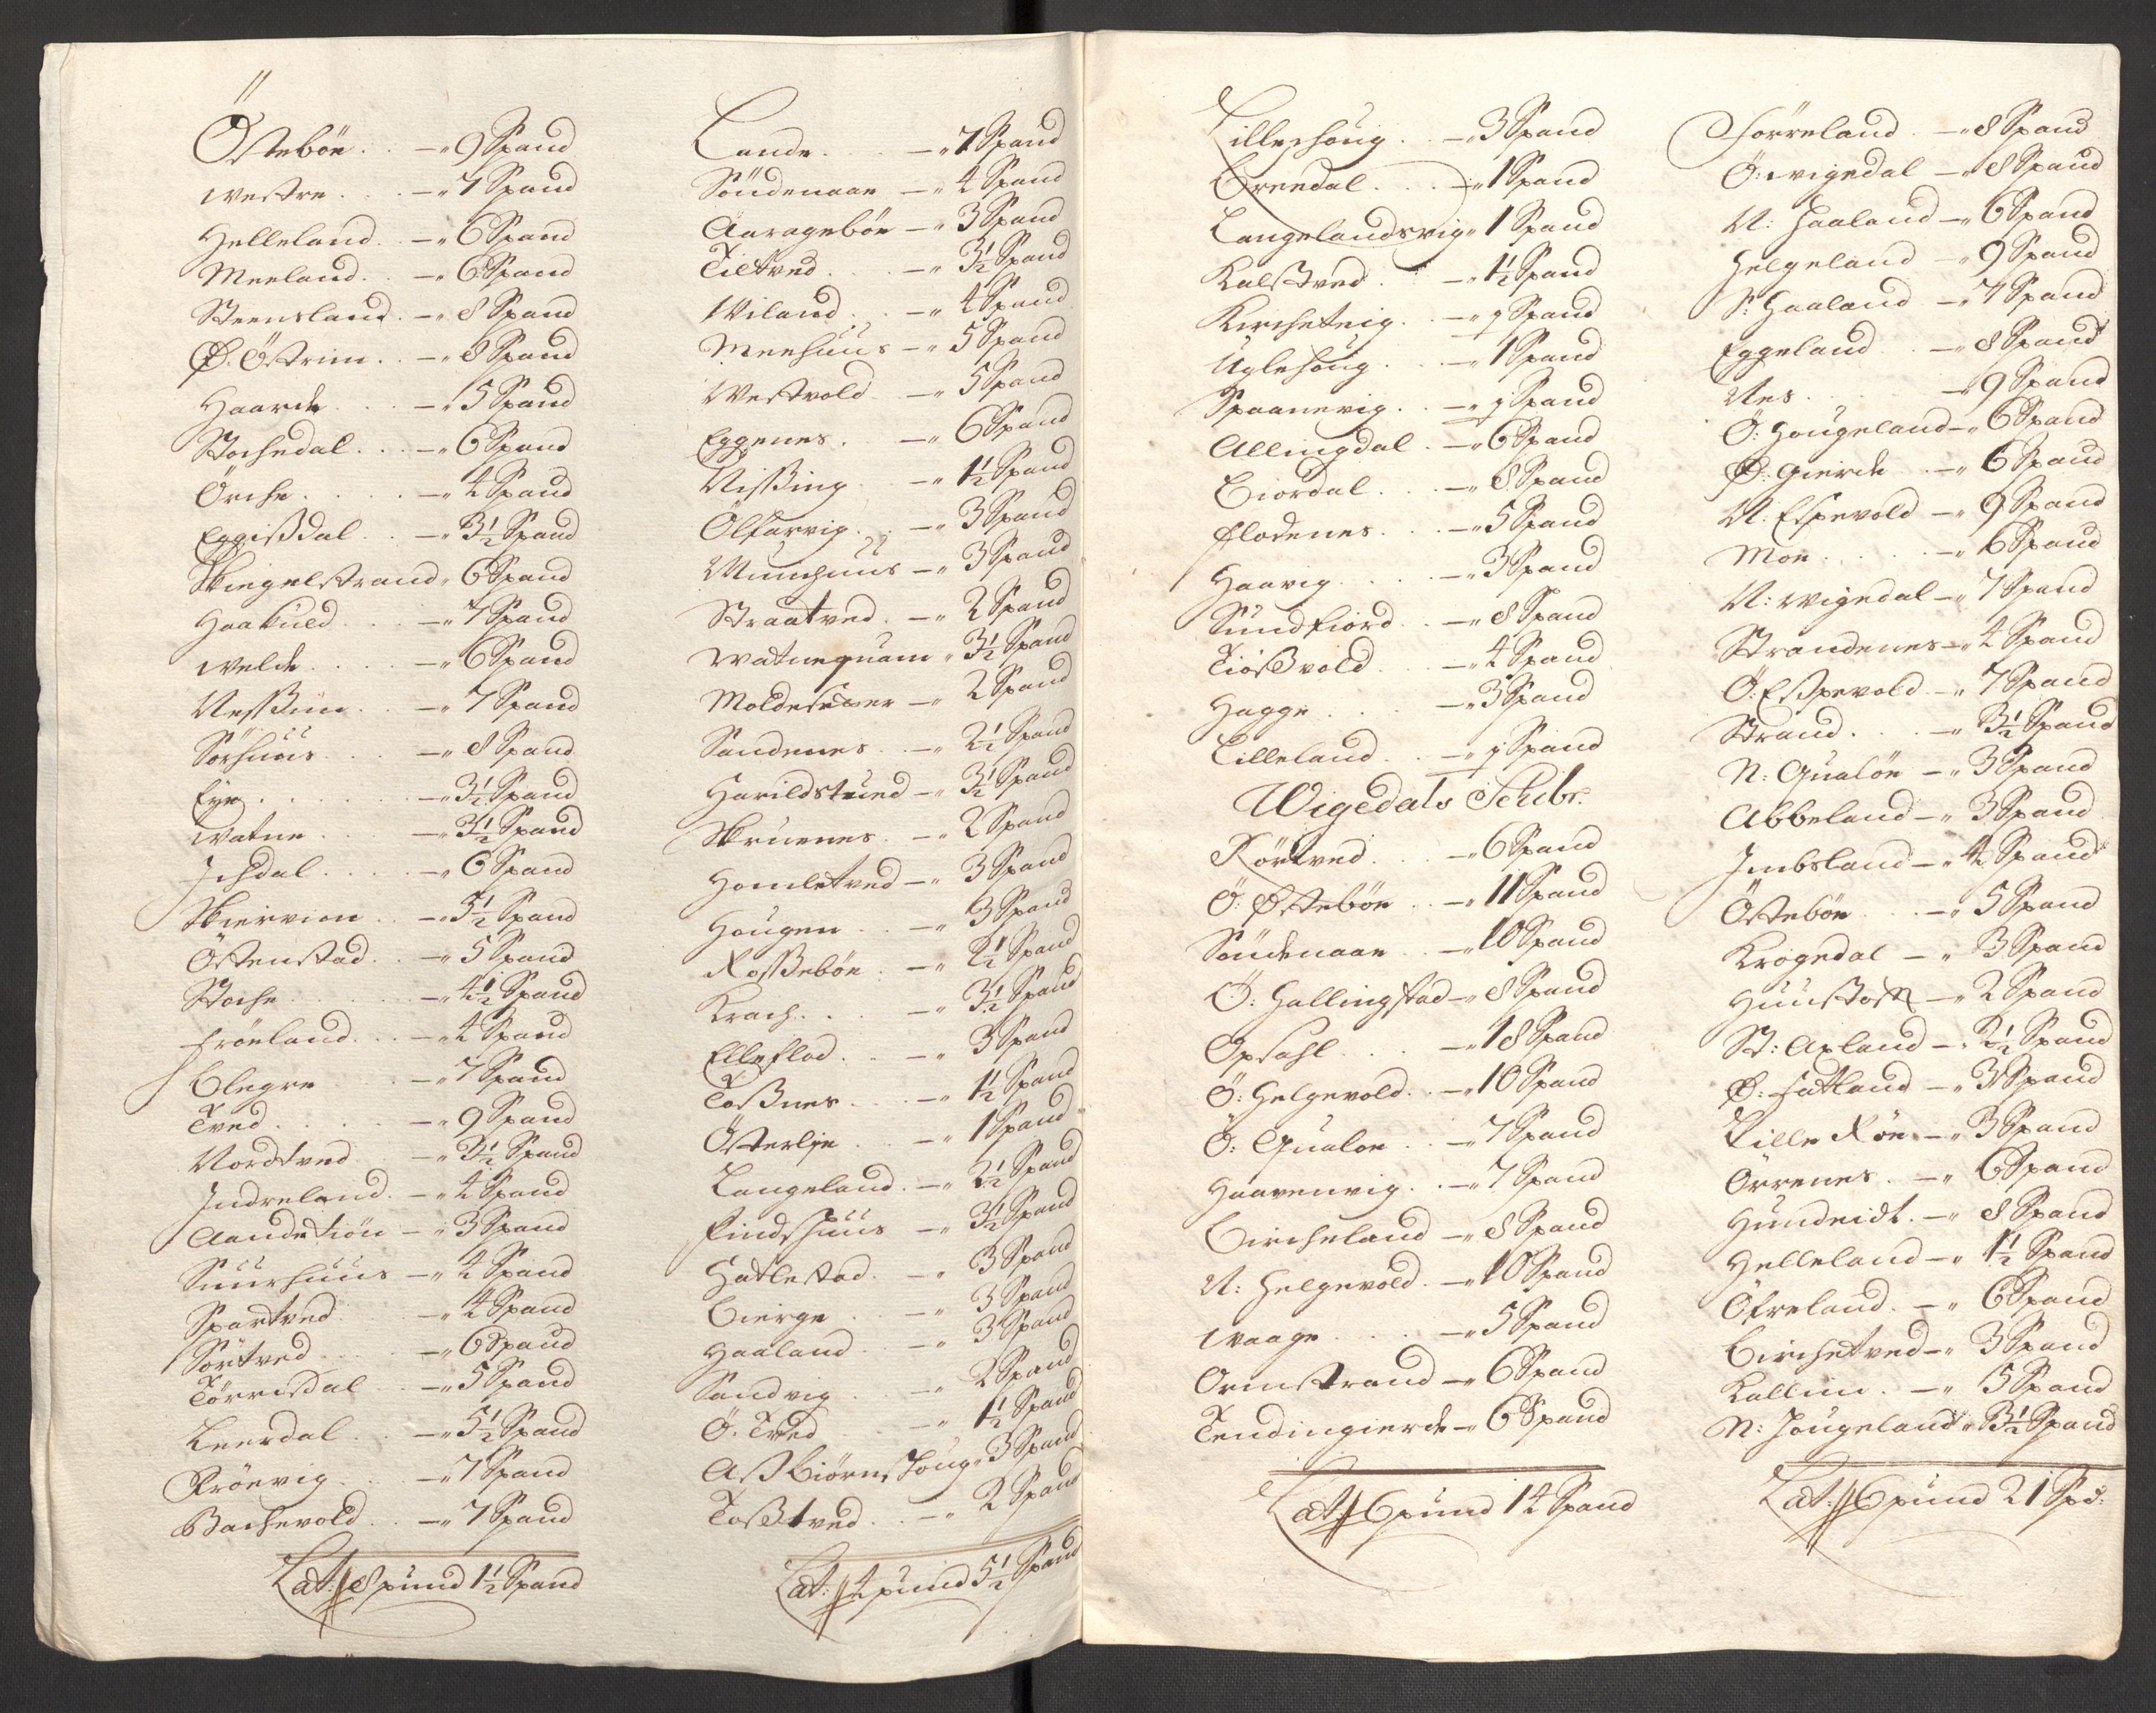 Östebön . . —„ 9 Spand
westre . . . —„ 7 Spand
Helleland . . —„ 6 Spand
Meeland . . —„ 6 Spand
Steensland . —„ 8 Spand
Ø. Östrim . . —„ 8 Spand
Haarde . . . —„ 5 Spand
Stochedal . . . —„ 6 Spand
Örche . . . . —„ 4 Spand
Eggißdal . . —„ 3½ Spand
Skiegelstrand „ 6 Spand
Haakuld . . . —„ 7 Spand
welde . . . . —„ 6 Spand
Neßßim . . —„ 7 Spand
Sörhuus . . —„ 8 Spand
Eye . . . . . —„ 3½ Spand
watne . . . —„ 3½ Spand
Ichdal . . . . —„ 6 Spand
Skiervion . . —„ 5½ Spand
Östenstad . . —„ 5 Spand
Stoche . . . —„ 4½ Spand
Fröeland . . . —„ 4 Spand
Blegre . . —„ 7 Spand
Tved . . . . . —„ 9 Spand
Nordtved . . —„ 3½ Spand
Indreland . —„ 4 Spand
Aandetiön —„ 3 Spand
Suurhuus —„ 4 Spand
Spartved . . —„ 4 Spand
Sörtved . . . —„ 6 Spand
Törrisdal . . —„ 5 Spand
Leerdal . . —„ 5½ Spand
Fröevig . . . —„ 7 Spand
Bachevold . . —„ 7 Spand
Lat: 8 pund 1½ Spand
Lande . . . —„ 7 Spand
Söndenaae —„ 4 Spand
Aaragebön —„ 3 Spand
Tiltved . . . —„ 3½ Spand
Wiland . . —„ 4 Spand
Meehuus —„ 5 Spand
Westvold . —„ 5 Spand
Eggenes . . —„ 6 Spand
Nißing . . —„ 1½ Spand
Ölfarvig . . —„ 3 Spand
Munchuus —„ 3 Spand
Straatved . —„ 2 Spand
watnequam „ 3½ Spand
Moldeseter —„ 2 Spand
Sandenes . . —„ 2½ Spand
Harildstued —„ 3½ Spand
Skruenes . —„ 2 Spand
Homletved —„ 3 Spand
Hougen . . —„ 3 Spand
Roßebön . —„ 2½ Spand
Krach . . . —„ 3½ Spand
Elleflod . . —„ 3 Spand
Toßnes . . . —„ 1½ Spand
Österlje . . —„ 1 Spand
Langeland . —„ 2½ Spand
Findshuus —„ 3½ Spand
Hatlestad . —„ 3 Spand
Bierge . . . —„ 3 Spand
Haaland . . —„ 3 Spand
Sandvig . . —„ 2 Spand
Ö. Tved . . —„ 1½ Spand
Aßbiörnshoug „ 3 Spand
Toßtved . . —„ 2 Spand
Lat: 4 pund 5½ Spand
Lillehoug . . —„ 3 Spand
Breedal . . . —„ 1 Spand
Langelandsvig „ 1 Spand
Kalßtved . . —„ 1½ Spand
Kircheteig . . —„ 9 Spand
Uglehoug . . —„ 1 Spand
Spaanevig . —„ 9 Spand
Allingdal . —„ 6 Spand
Biördal . . . —„ 8 Spand
Flodenes . . . —„ 5 Spand
Haavig . . . . —„ 3 Spand
Sundfiord . . —„ 8 Spand
Tiößvold . . —„ 4 Spand
Hagge . . . —„ 3 Spand
Lilleland . . —„ 9 Spand
Wigedals Schibr:
Rörtved . . . —„ 6 Spand
Ö: Östebön . . —„ 11 Spand
Söndenaae . . —„ 10 Spand
Ö: Hallingstad —„ 8 Spand
Opsahl . . . —„ 18 Spand
Ö: Helgevold . . —„ 10 Spand
Ö: Qualoe . . —„ 7 Spand
Haarenvig . . —„ 7 Spand
Bircheland —„ 8 Spand
N: Helgevold . —„ 10 Spand
waage . . . . —„ 5 Spand
Ormstrand —„ 6 Spand
Tendingierde —„ 6 Spand
Lat: 6 pund 14 Spand
Förreland . . —„ 8 Spand
Ö: wigedal —„ 8 Spand
N: Haaland —„ 6 Spand
Helgeland —„ 9 Spand
S: Haaland —„ 7 Spand
Eggeland . . —„ 8 Spand
Nes . . . . —„ 9 Spand
Ö: Hougeland —„ 6 Spand
Ø: Gierde . —„ 6 Spand
N: Espevold —„ 9 Spand
Moe . . . . —„ 6 Spand
N: wigedal —„ 7 Spand
Strandenes —„ 4 Spand
Ö: Eßpevold —„ 7 Spand
Strand . . . —„ 3½ Spand
N: Qualöe —„ 3 Spand
Abbeland —„ 3 Spand
Imbsland —„ 4 Spand
Östebön . . —„ 5 Spand
Krogedal —„ 3 Spand
Huustoft —„ 2 Spand
St: Axland —„ 2½ Spand
Ø: Fatland —„ 3 Spand
Lille Röe —„ 3 Spand
Örrenes . —„ 6 Spand
Hundeidt . —„ 8 Spand
Helleland —„ 1½ Spand
Öfreland . —„ 6 Spand
Birchetved —„ 3 Spand
Kallim . —„ 5 Spand
N: Hougeland „ 3½ Spand
Lat: 6 pund 21 Spd: